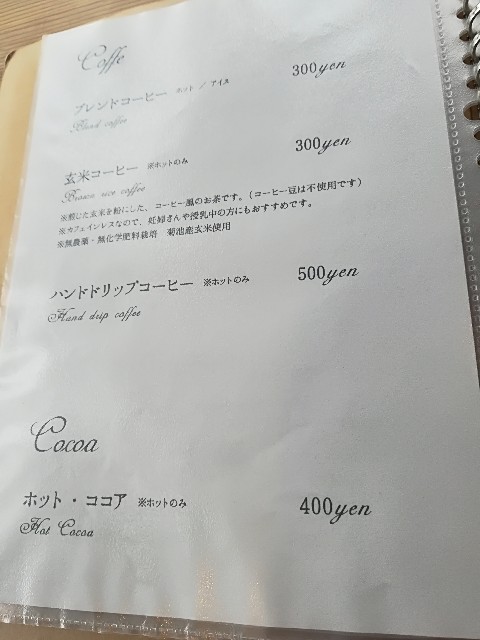 Coffe
ブレンドコーヒー ホット / アイス 300yen
Blend coffee
玄米コーヒー ※ホットのみ 300yen
Brown rice coffee
※煎じた玄米を粉にした、コーヒー風のお茶です。(コーヒー豆は不使用です)
※カフェインレスなので、妊婦さんや授乳中の方にもおすすめです。
※無農薬・無化学肥料栽培 菊池産玄米使用
ハンドドリップコーヒー ※ホットのみ 500yen
Hand drip coffee
Cocoa
ホット・ココア ※ホットのみ 400yen
Hot Cocoa